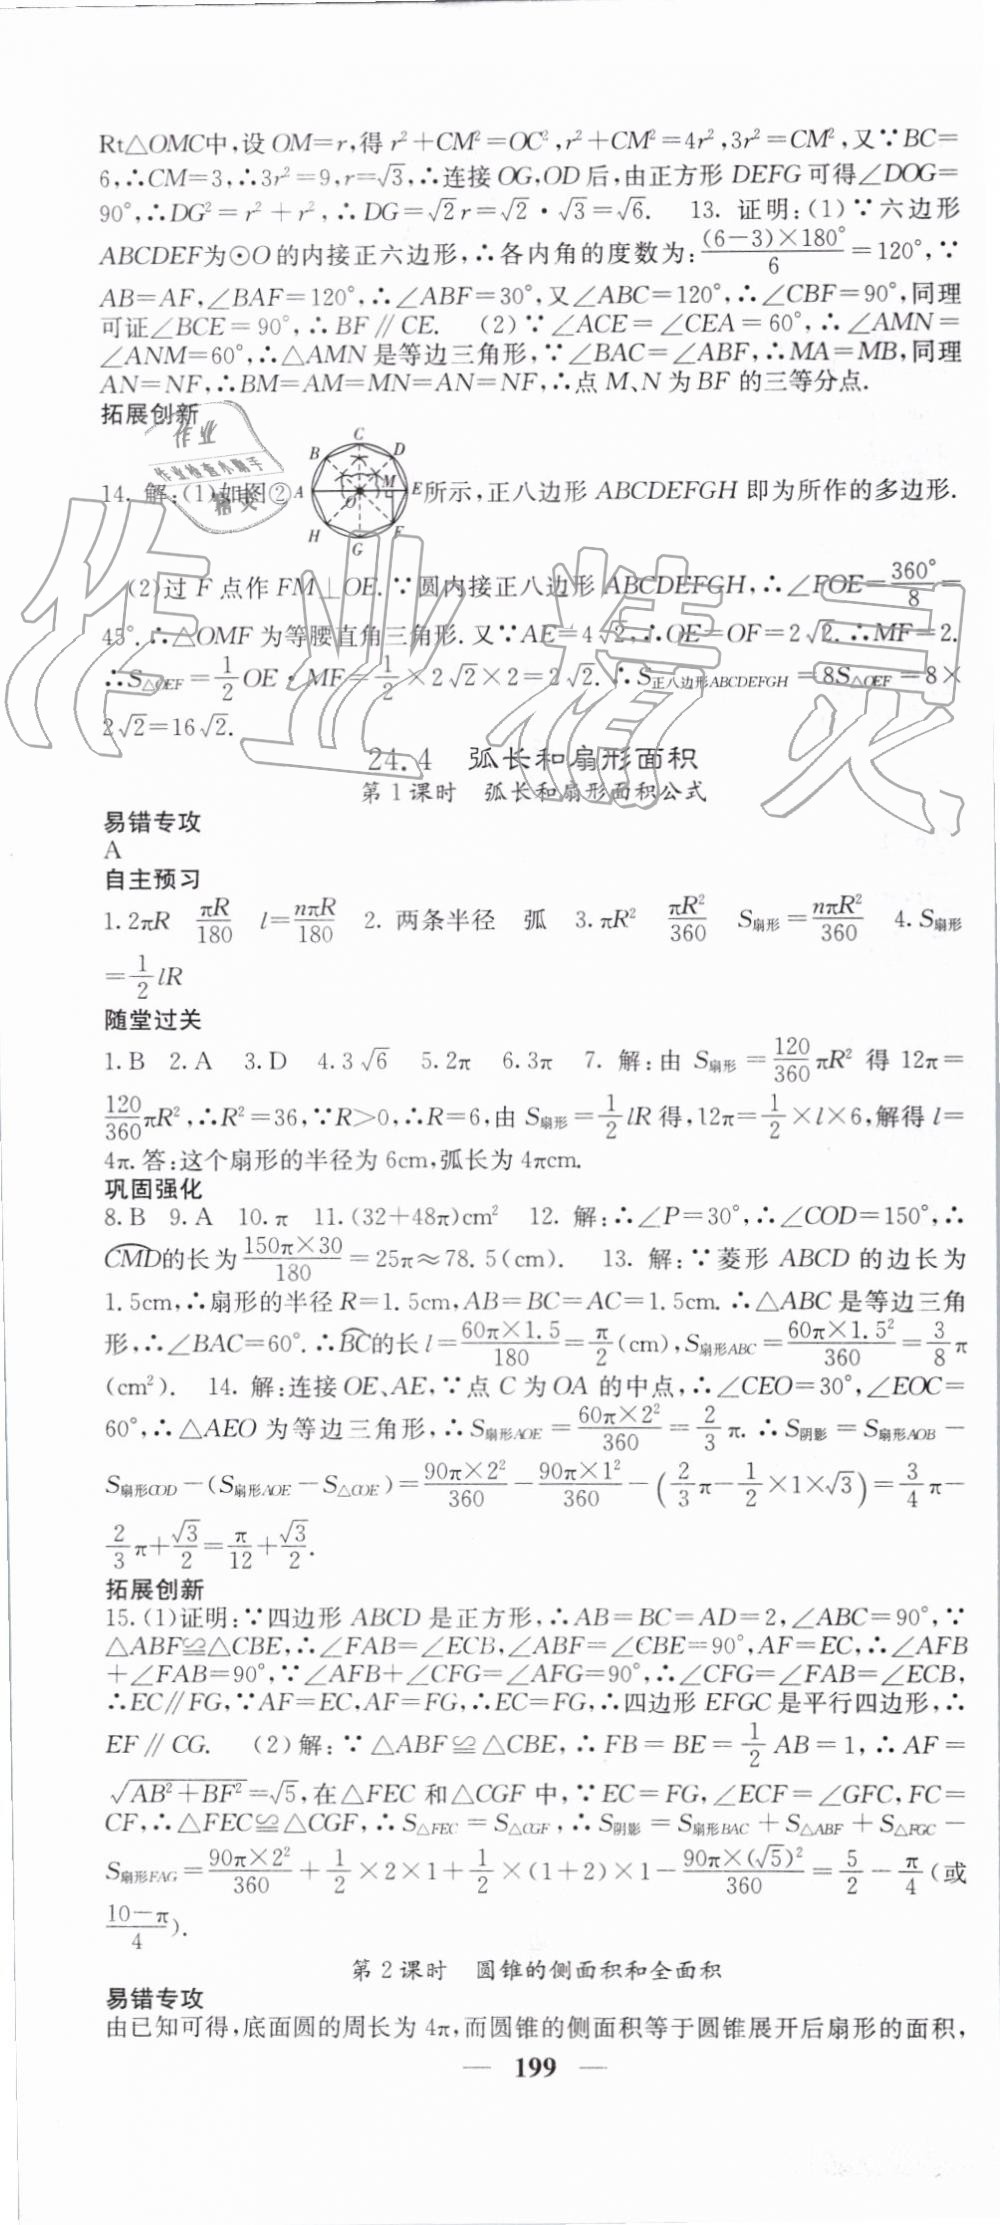 Rt△OMC中,设OM=r,得r²+CM²=OC²,r²+CM²=4r²,3r²=CM²,又∵BC=
6,∴CM=3,∴3r²=9,r=√3,∴连接OG,OD后,由正方形DEFG可得∠DOG=
90°,∴DG²=r²+r²,∴DG=√2r=√2·√3=√6. 13. 证明:(1)∵六边形
ABCDEF为⊙O的内接正六边形,∴各内角的度数为:(6-3)×180°/6=120°,∵
AB=AF,∠BAF=120°,∴∠ABF=30°,又∠ABC=120°,∴∠CBF=90°,同理
可证∠BCE=90°,∴BF∥CE. (2)∵∠ACE=∠CEA=60°,∴∠AMN=
∠ANM=60°,∴△AMN是等边三角形,∵∠BAC=∠ABF,∴MA=MB,同理
AN=NF,∴BM=AM=MN=AN=NF,∴点M、N为BF的三等分点.
拓展创新
14. 解:(1)如图②所示,正八边形ABCDEFGH即为所作的多边形.
C
B D
A M E
O
H F
G
(2)过F点作FM⊥OE.∵圆内接正八边形ABCDEFGH,∴∠FOE=360°/8=
45°.∴△OMF为等腰直角三角形.又∵AE=4√2,∴OE=OF=2√2.∴MF=2.
∴S△OEF=1/2OE·MF=1/2×2√2×2=2√2.∴S正八边形ABCDEFGH=8S△OEF=8×
2√2=16√2.
24.4 弧长和扇形面积
第1课时 弧长和扇形面积公式
易错专攻
A
自主预习
1. 2πR πR/180 l=nπR/180 2. 两条半径 弧 3. πR² πR²/360 S扇形=nπR²/360 4. S扇形
=1/2lR
随堂过关
1. B 2. A 3. D 4. 3√6 5. 2π 6. 3π 7. 解:由S扇形=120/360πR²得12π=
120/360πR²,∴R²=36,∵R>0,∴R=6,由S扇形=1/2lR得,12π=1/2×l×6,解得l=
4π.答:这个扇形的半径为6cm,弧长为4πcm.
巩固强化
8. B 9. A 10. π 11. (32+48π)cm² 12. 解:∴∠P=30°,∴∠COD=150°,∴
CMD的长为150π×30/180=25π≈78.5(cm). 13. 解:∵菱形ABCD的边长为
1.5cm,∴扇形的半径R=1.5cm,AB=BC=AC=1.5cm.∴△ABC是等边三角
形,∴∠BAC=60°.∴BC的长l=60π×1.5/180=π/2(cm),S扇形ABC=60π×1.5²/360=3/8π
(cm²). 14. 解:连接OE、AE,∵点C为OA的中点,∴∠CEO=30°,∠EOC=
60°,∴△AEO为等边三角形,∴S扇形AOE=60π×2²/360=2/3π.∴S阴影=S扇形AOB-
S扇形COD-(S扇形AOE-S△COE)=90π×2²/360-90π×1²/360-(2/3π-1/2×1×√3)=3/4π-
2/3π+√3/2=π/12+√3/2.
拓展创新
15. (1)证明:∵四边形ABCD是正方形,∴AB=BC=AD=2,∠ABC=90°,∵
△ABF≌△CBE,∴∠FAB=∠ECB,∠ABF=∠CBE=90°,AF=EC,∴∠AFB
+∠FAB=90°,∵∠AFB+∠CFG=∠AFG=90°,∴∠CFG=∠FAB=∠ECB,
∴EC∥FG,∵AF=EC,AF=FG,∴EC=FG,∴四边形EFGC是平行四边形,∴
EF∥CG. (2)解:∵△ABF≌△CBE,∴FB=BE=1/2AB=1,∴AF=
√(AB²+BF²)=√5,在△FEC和△CGF中,∵EC=FG,∠ECF=∠GFC,FC=
CF,∴△FEC≌△CGF,∴S△FEC=S△CGF,∴S阴影=S扇形BAC+S△ABF+S△FGC-
S扇形FAG=90π×2²/360+1/2×2×1+1/2×(1+2)×1-90π×(√5)²/360=5/2-π/4(或
(10-π)/4).
第2课时 圆锥的侧面积和全面积
易错专攻
由已知可得,底面圆的周长为4π,而圆锥的侧面积等于圆锥展开后扇形的面积,
— 199 —
作业精灵
作业
作业检查小助手
精灵